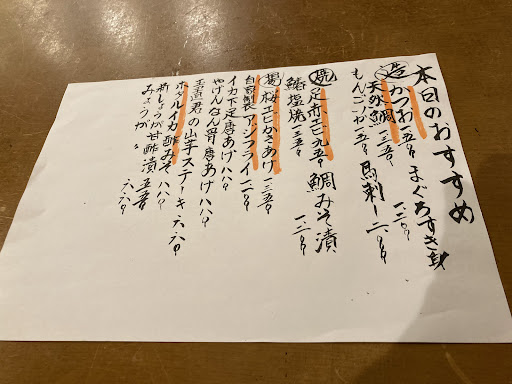 本日のおすすめ
造 かつお 一五〇〇 まぐろすき身 一、二〇〇
天然鯛 一、三五〇 馬刺し 二、〇〇〇
もんごいか 一、一五〇
焼 足赤エビ 九五〇 鯛みそ漬 一、二〇〇
鰆塩焼 一、三五〇
揚 桜エビかきあげ 一、三五〇
自家製アジフライ 一、一〇〇
イカ下足唐あげ 八八〇
やげんなん骨唐あげ 八八〇
王道君の山芋ステーキ 六六〇
ホタルイカ酢みそ 八八〇
新しょうが甘酢漬 五五〇
みょうが 〃 六六〇